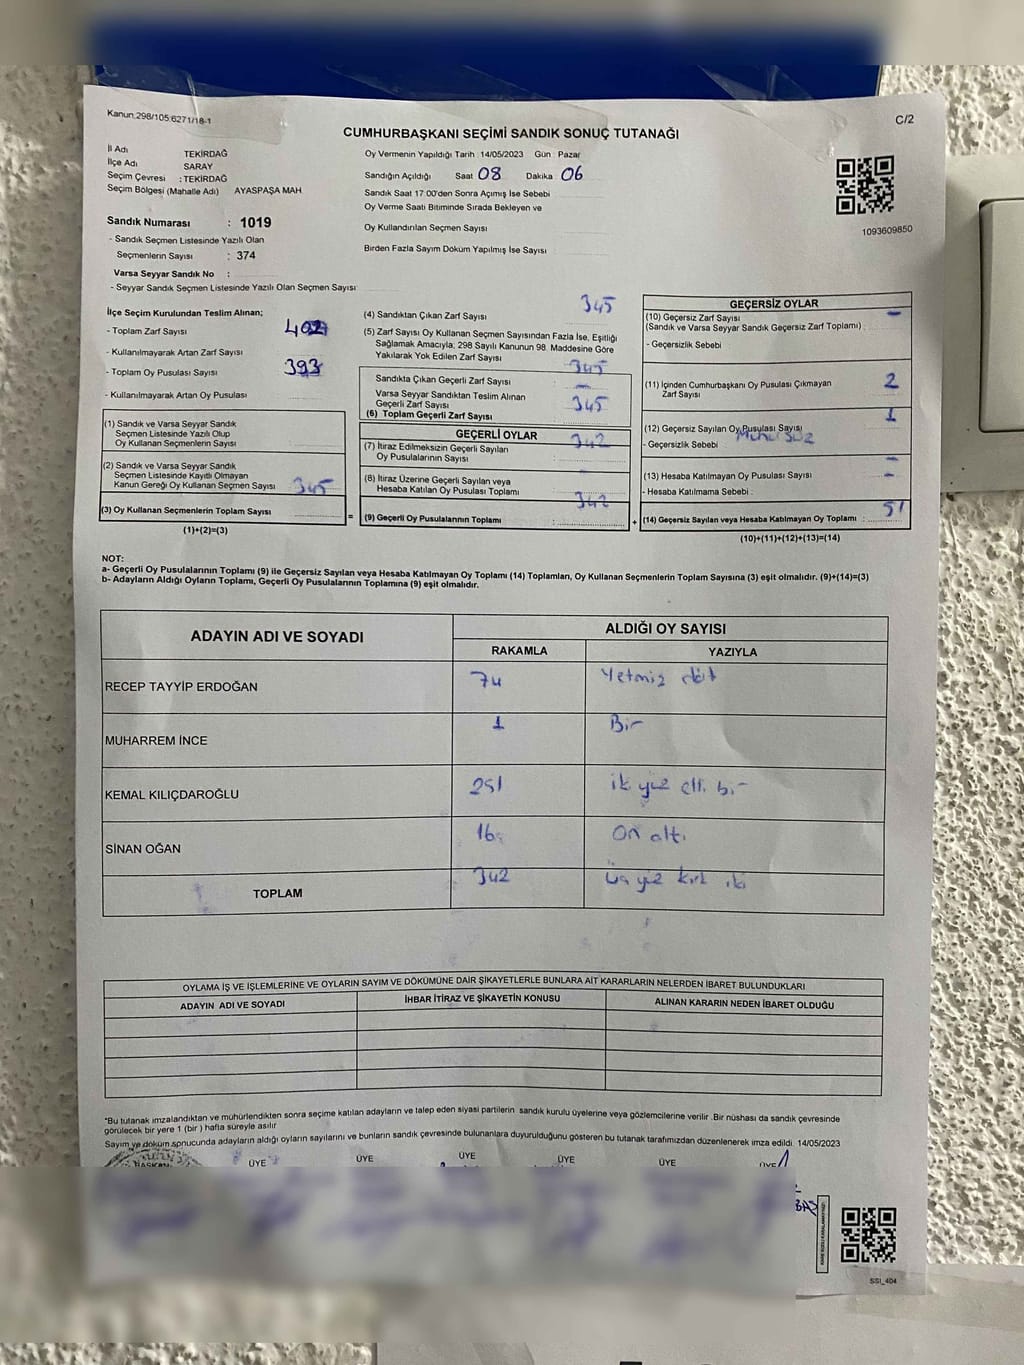 Kanun.298/105.6271/18-1
C/2
CUMHURBAŞKANI SEÇİMİ SANDIK SONUÇ TUTANAĞI
İl Adı TEKİRDAĞ
İlçe Adı SARAY
Seçim Çevresi : TEKİRDAĞ
Seçim Bölgesi (Mahalle Adı) AYASPAŞA MAH.
Oy Vermenin Yapıldığı Tarih :14/05/2023 Gün : Pazar
Sandığın Açıldığı Saat 08 Dakika 06
Sandık Saat 17:00'den Sonra Açımış İse Sebebi
Oy Verme Saati Bitiminde Sırada Bekleyen ve
Oy Kullandırılan Seçmen Sayısı
Birden Fazla Sayım Döküm Yapılmış İse Sayısı
1093609850
Sandık Numarası : 1019
- Sandık Seçmen Listesinde Yazılı Olan
Seçmenlerin Sayısı : 374
Varsa Seyyar Sandık No :
- Seyyar Sandık Seçmen Listesinde Yazılı Olan Seçmen Sayısı
İlçe Seçim Kurulundan Teslim Alınan;
- Toplam Zarf Sayısı
- Kullanılmayarak Artan Zarf Sayısı
- Toplam Oy Pusulası Sayısı 393
- Kullanılmayarak Artan Oy Pusulası
(1) Sandık ve Varsa Seyyar Sandık
Seçmen Listesinde Yazılı Olup
Oy Kullanan Seçmenlerin Sayısı
(2) Sandık ve Varsa Seyyar Sandık
Seçmen Listesinde Kayıtlı Olmayan
Kanun Gereği Oy Kullanan Seçmen Sayısı 345
(3) Oy Kullanan Seçmenlerin Toplam Sayısı
(1)+(2)=(3)
=
(4) Sandıktan Çıkan Zarf Sayısı 345
(5) Zarf Sayısı Oy Kullanan Seçmen Sayısından Fazla İse, Eşitliği
Sağlamak Amacıyla; 298 Sayılı Kanunun 98. Maddesine Göre
Yakılarak Yok Edilen Zarf Sayısı
345
Sandıkta Çıkan Geçerli Zarf Sayısı : -
Varsa Seyyar Sandıktan Teslim Alınan
Geçerli Zarf Sayısı : 345
(6) Toplam Geçerli Zarf Sayısı
GEÇERLİ OYLAR
342
(7) İtiraz Edilmeksizin Geçerli Sayılan
Oy Pusulalarının Sayısı
(8) İtiraz Üzerine Geçerli Sayılan veya
Hesaba Katılan Oy Pusulası Toplamı
342
(9) Geçerli Oy Pusulalarının Toplamı :
+
GEÇERSİZ OYLAR
(10) Geçersiz Zarf Sayısı -
(Sandık ve Varsa Seyyar Sandık Geçersiz Zarf Toplamı) :
- Geçersizlik Sebebi
(11) İçinden Cumhurbaşkanı Oy Pusulası Çıkmayan
Zarf Sayısı 2
1
(12) Geçersiz Sayılan Oy Pusulası Sayısı
- Geçersizlik Sebebi Mühürsüz
-
(13) Hesaba Katılmayan Oy Pusulası Sayısı -
- Hesaba Katılmama Sebebi :
(14) Geçersiz Sayılan veya Hesaba Katılmayan Oy Toplamı :
(10)+(11)+(12)+(13)=(14)
NOT:
a- Geçerli Oy Pusulalarının Toplamı (9) ile Geçersiz Sayılan veya Hesaba Katılmayan Oy Toplamı (14) Toplamları, Oy Kullanan Seçmenlerin Toplam Sayısına (3) eşit olmalıdır. (9)+(14)=(3)
b- Adayların Aldığı Oyların Toplamı, Geçerli Oy Pusulalarının Toplamına (9) eşit olmalıdır.
ADAYIN ADI VE SOYADI
ALDIĞI OY SAYISI
RAKAMLA YAZIYLA
RECEP TAYYİP ERDOĞAN 74 Yetmiş dört
MUHARREM İNCE 1 Bir
KEMAL KILIÇDAROĞLU 251 iki yüz elli bir
SİNAN OĞAN 16 On altı
TOPLAM 342 Üç yüz kırk iki
OYLAMA İŞ VE İŞLEMLERİNE VE OYLARIN SAYIM VE DÖKÜMÜNE DAİR ŞİKAYETLERLE BUNLARA AİT KARARLARIN NELERDEN İBARET BULUNDUKLARI
ADAYIN ADI VE SOYADI İHBAR İTİRAZ VE ŞİKAYETİN KONUSU ALINAN KARARIN NEDEN İBARET OLDUĞU
*Bu tutanak imzalandıktan ve mühürlendikten sonra seçime katılan adayların ve talep eden siyasi partilerin sandık kurulu üyelerine veya gözlemcilerine verilir. Bir nüshası da sandık çevresinde
görülecek bir yere 1 (bir) hafta süreyle asılır.
Sayım ve döküm sonucunda adayların aldığı oyların sayılarını ve bunların sandık çevresinde bulunanlara duyurulduğunu gösteren bu tutanak tarafımızdan düzenlenerek imza edildi. 14/05/2023
BAŞKAN ÜYE ÜYE ÜYE ÜYE ÜYE ÜYE
SSI_404